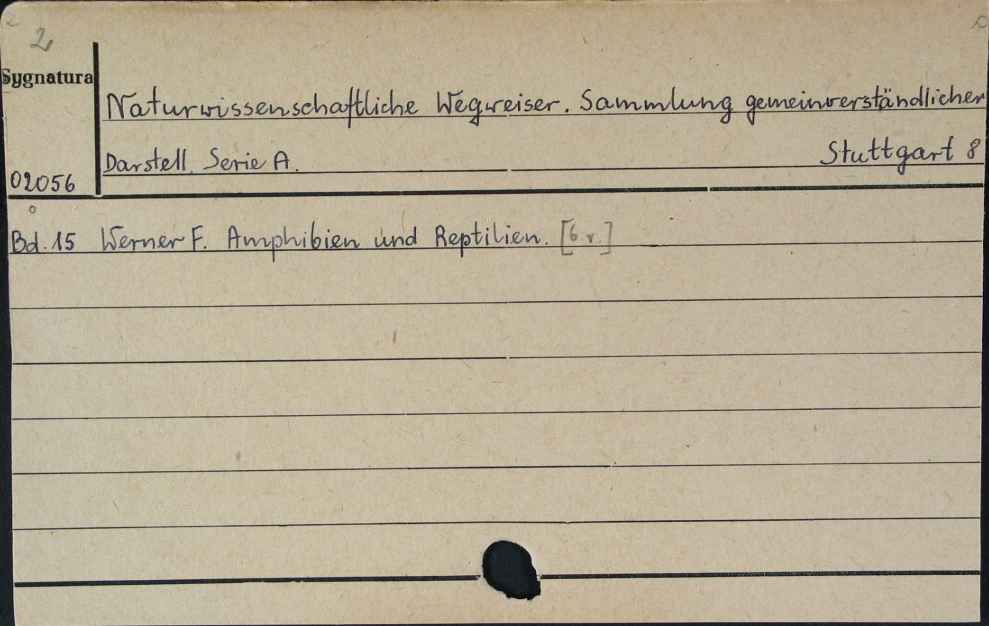 2
Sygnatura
Naturwissenschaftliche Wegweiser. Sammlung gemeinverständlicher
Darstell. Serie A. Stuttgart 8
02056
Bd. 15 Werner F. Amphibien und Reptilien. [6 r.]